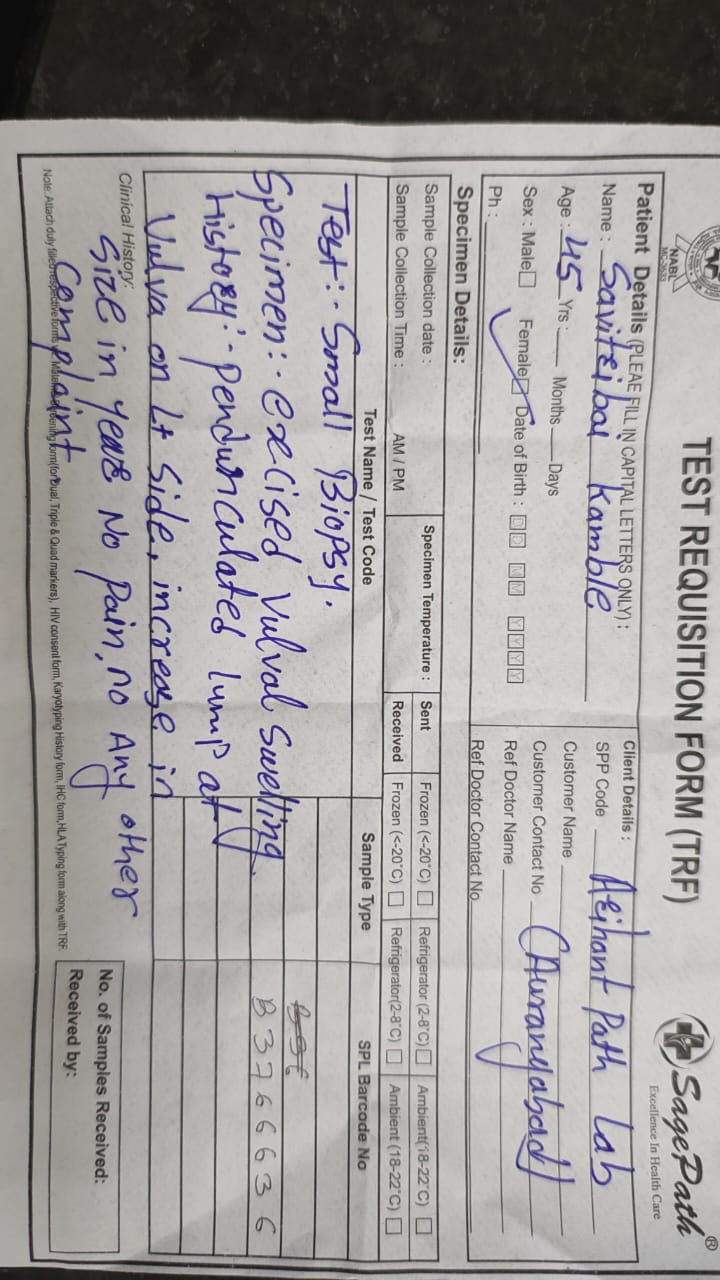 NABL
MC-2633
TEST REQUISITION FORM (TRF)
SagePath®
Excellence In Health Care
Patient Details (PLEAE FILL IN CAPITAL LETTERS ONLY) :
Name : Savitribai Kamble
Age : 45 Yrs : Months Days
Sex : Male Female Date of Birth : DD MM YYYY
Ph :
Client Details :
SPP Code Arihant Path Lab
Customer Name
Customer Contact No (Aurangabad)
Ref Doctor Name
Ref Doctor Contact No
Specimen Details:
Sample Collection date : Specimen Temperature : Sent Frozen (<-20°C) Refrigerator (2-8°C) Ambient(18-22°C)
Sample Collection Time : AM / PM Received Frozen (<-20°C) Refrigerator(2-8°C) Ambient (18-22°C)
Test Name / Test Code Sample Type SPL Barcode No
Test:- Small Biopsy.
Specimen:- excised Vulval Swelling. B3766636
History:- Pendunculated lump at
Vulva on Lt side, increase in
Clinical History:
Size in years No Pain, no Any other
Complaint
No. of Samples Received:
Received by:
Note: Attach duly filled respective forms Dual, Triple & Quad markers), HIV consent form, Karyotyping History form, IHC form, HLA Typing form along with TRF